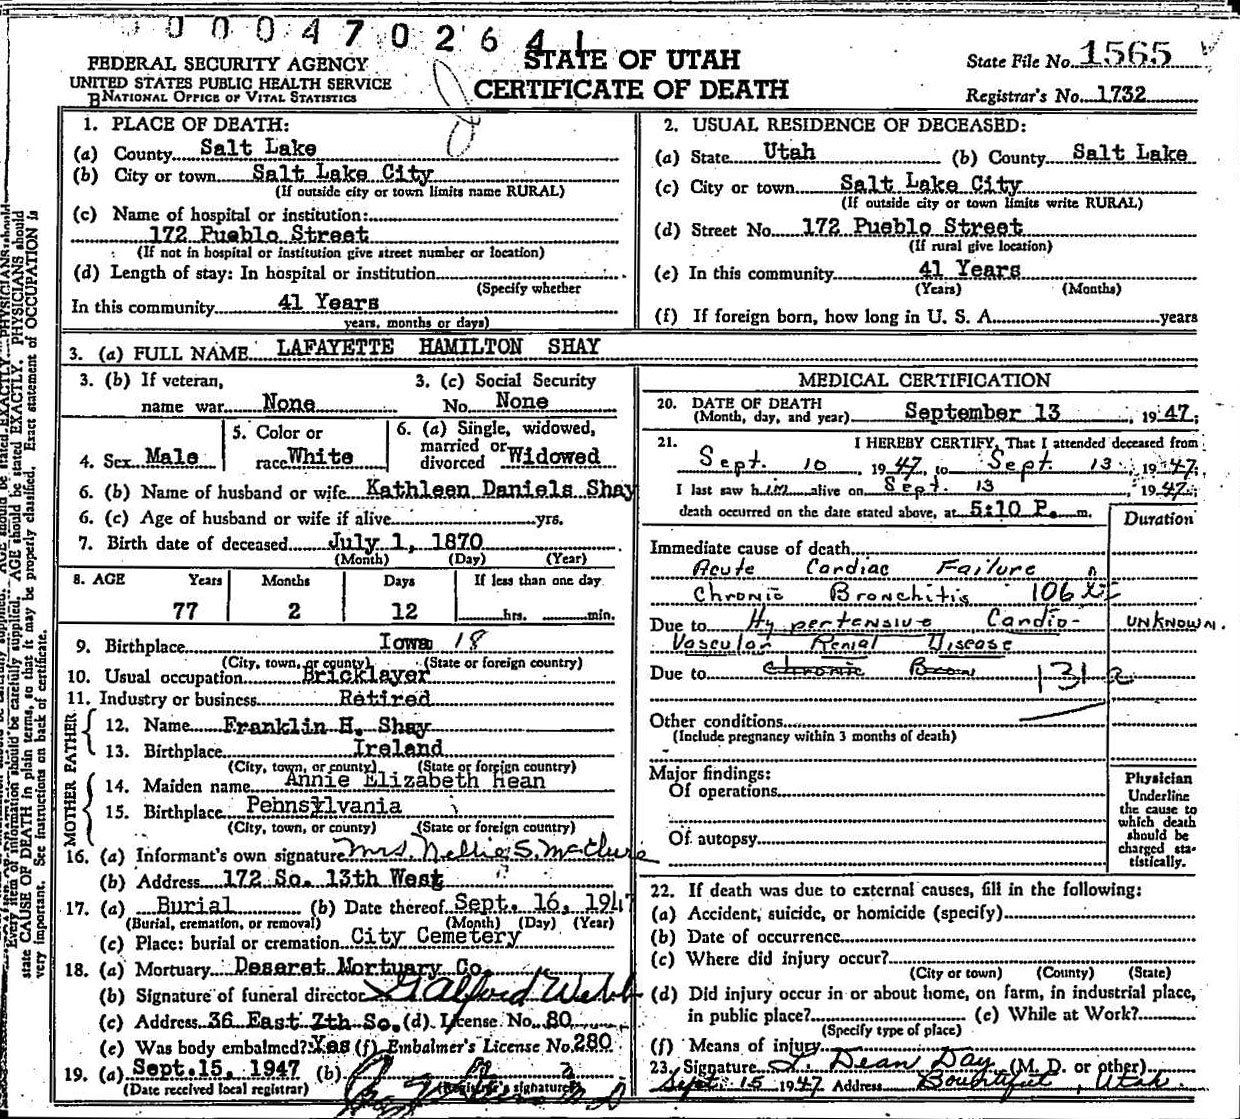 0 0 0 4 7 0 2 6 4 1
FEDERAL SECURITY AGENCY
UNITED STATES PUBLIC HEALTH SERVICE
NATIONAL OFFICE OF VITAL STATISTICS
STATE OF UTAH
CERTIFICATE OF DEATH
State File No. 1565
Registrar's No. 1732
1. PLACE OF DEATH:
(a) County Salt Lake
(b) City or town Salt Lake City
(If outside city or town limits name RURAL)
(c) Name of hospital or institution:
172 Pueblo Street
(If not in hospital or institution give street number or location)
(d) Length of stay: In hospital or institution
(Specify whether
In this community 41 Years
years, months or days)
2. USUAL RESIDENCE OF DECEASED:
(a) State Utah (b) County Salt Lake
(c) City or town Salt Lake City
(If outside city or town limits write RURAL)
(d) Street No. 172 Pueblo Street
(If rural give location)
(e) In this community 41 Years
(Years) (Months)
(f) If foreign born, how long in U. S. A. years
3. (a) FULL NAME LAFAYETTE HAMILTON SHAY
3. (b) If veteran, name war None
3. (c) Social Security No. None
4. Sex Male
5. Color or race White
6. (a) Single, widowed, married or divorced Widowed
6. (b) Name of husband or wife Kathleen Daniels Shay
6. (c) Age of husband or wife if alive yrs.
7. Birth date of deceased July 1, 1870
(Month) (Day) (Year)
8. AGE Years Months Days If less than one day
77 2 12 hrs. min.
9. Birthplace Iowa 18
(City, town, or county) (State or foreign country)
10. Usual occupation Bricklayer
11. Industry or business Retired
FATHER
12. Name Franklin H. Shay
13. Birthplace Ireland
(City, town, or county) (State or foreign country)
MOTHER
14. Maiden name Annie Elizabeth Hean
15. Birthplace Pehnsylvania
(City, town, or county) (State or foreign country)
16. (a) Informant's own signature Mrs. Nellie S. McClure
(b) Address 172 So. 13th West
17. (a) Burial (b) Date thereof Sept. 16, 1947
(Burial, cremation, or removal) (Month) (Day) (Year)
(c) Place: burial or cremation City Cemetery
18. (a) Mortuary Deseret Mortuary Co.
(b) Signature of funeral director Webb
(c) Address 36 East 7th So. (d) License No. 80
(e) Was body embalmed? Yes (f) Embalmer's License No. 280
19. (a) Sept. 15, 1947 (b)
(Date received local registrar) (Registrar's signature)
MEDICAL CERTIFICATION
20. DATE OF DEATH
(Month, day, and year) September 13, 1947;
21. I HEREBY CERTIFY, That I attended deceased from
Sept. 10, 1947, to Sept. 13, 1947;
I last saw him alive on Sept. 13, 1947;
death occurred on the date stated above, at 5:10 P. m.
Duration
Immediate cause of death
Acute Cardiac Failure
Chronic Bronchitis 106
Due to Hypertensive Cardio- UNKNOWN.
Vascular Renal Disease
Due to Chronic Bron 131 a
Other conditions
(Include pregnancy within 3 months of death)
Major findings:
Of operations
Of autopsy
Physician
Underline
the cause to
which death
should be
charged sta-
tistically.
22. If death was due to external causes, fill in the following:
(a) Accident, suicide, or homicide (specify)
(b) Date of occurrence
(c) Where did injury occur?
(City or town) (County) (State)
(d) Did injury occur in or about home, on farm, in industrial place,
in public place? (e) While at Work?
(Specify type of place)
(f) Means of injury
23. Signature L. Dean Day (M. D. or other)
Sept 15 1947 Address Bountiful, Utah
Every item of information should be carefully supplied. AGE should be stated EXACTLY. PHYSICIANS should
state CAUSE OF DEATH in plain terms, so that it may be properly classified. Exact statement of OCCUPATION is
very important. See instructions on back of certificate.